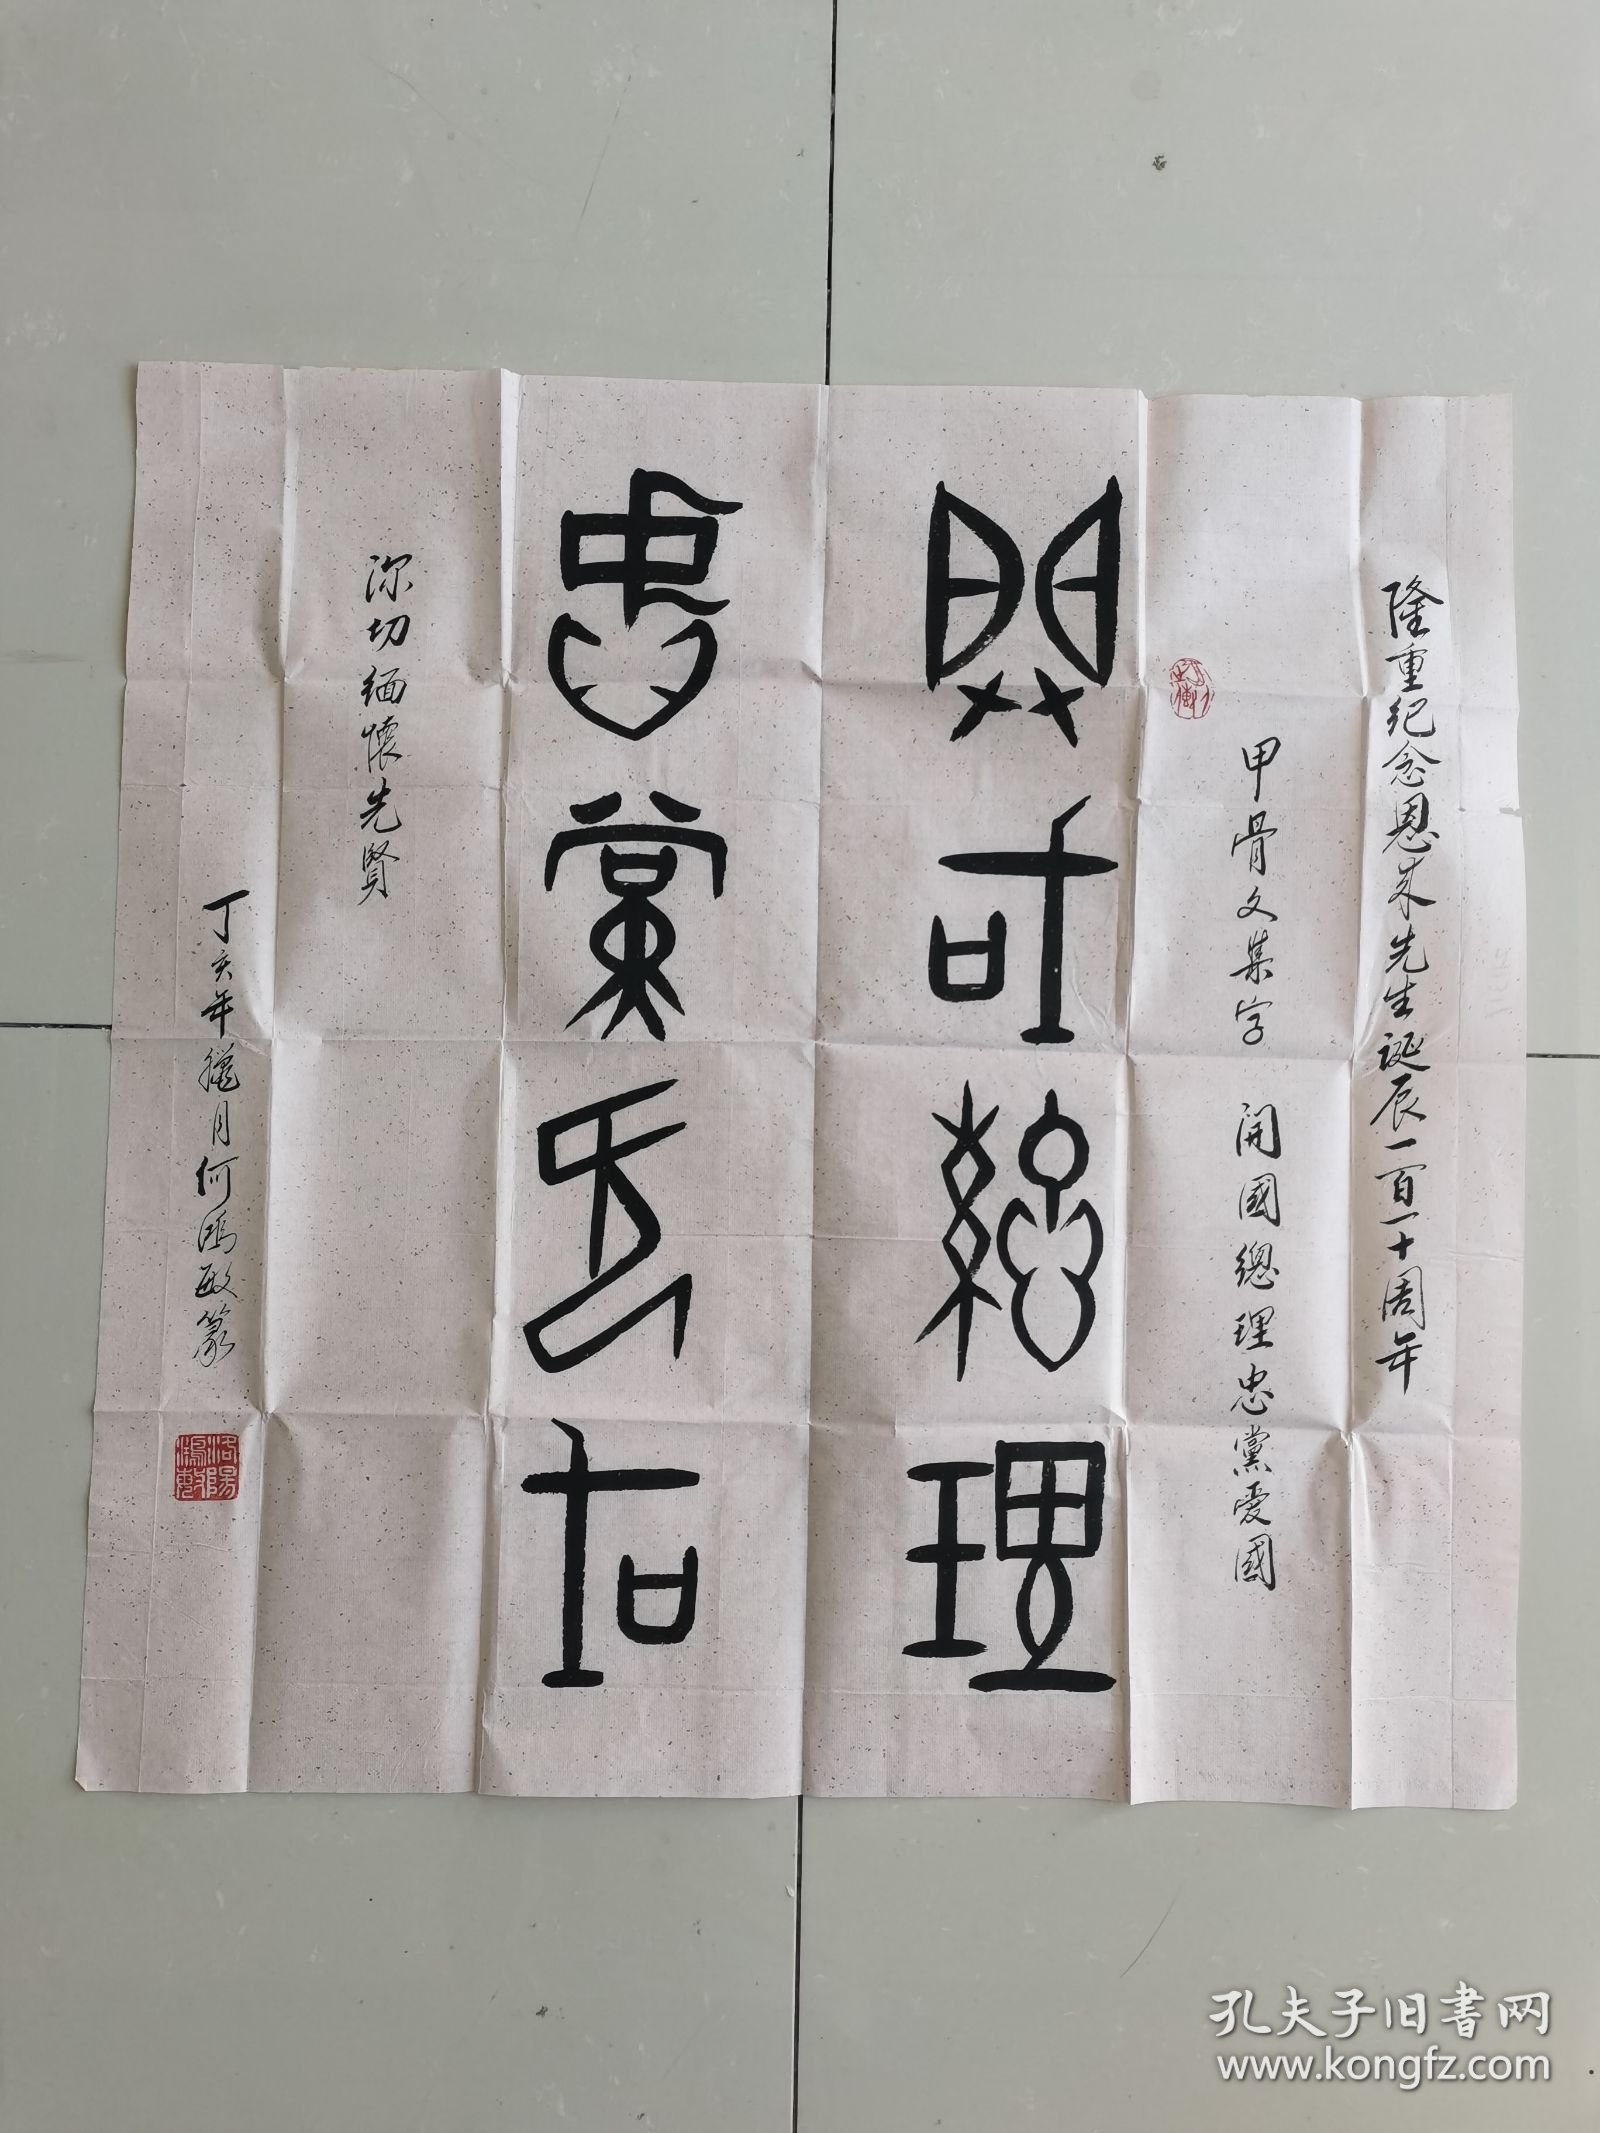 隆重纪念恩来先生诞辰一百一十周年
甲骨文集字 開國總理忠黨愛國
開國總理
忠黨愛國
深切缅懷先賢
丁亥年臘月何鴻敏篆
孔夫子旧书网
www.kongfz.com